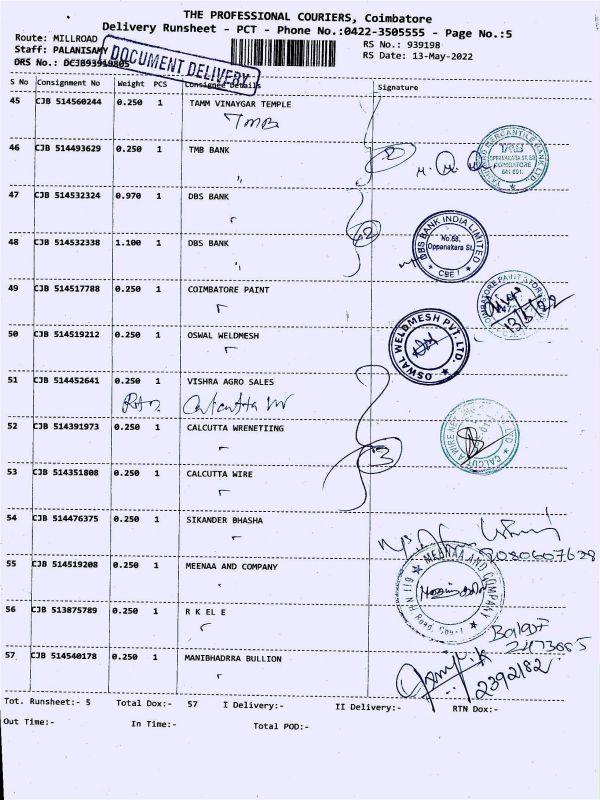 THE PROFESSIONAL COURIERS, Coimbatore
Delivery Runsheet - PCT - Phone No.:0422-3505555 - Page No.:5
Route: MILLROAD RS No.: 939198
Staff: PALANISAMY RS Date: 13-May-2022
DRS No.:
DOCUMENT DELIVERY
S No Consignment No Weight PCS Consignee Details Signature
45 CJB 514560244 0.250 1 TAMM VINAYGAR TEMPLE
TMB
46 CJB 514493629 0.250 1 TMB BANK
2
TAMILNAD MERCANTILE BANK LTD
TMB
OPPANAKARA ST,
COIMBATORE
641 001.
47 CJB 514532324 0.970 1 DBS BANK
2
48 CJB 514532338 1.100 1 DBS BANK
DBS BANK INDIA LIMITED
No.68,
Oppanakara St,
CBE
49 CJB 514517788 0.250 1 COIMBATORE PAINT
COIMBATORE PAINT STORES
13/5/22
50 CJB 514519212 0.250 1 OSWAL WELDMESH
OSWAL WELDMESH PVT. LTD.
51 CJB 514452641 0.250 1 VISHRA AGRO SALES
Calcutta
52 CJB 514391973 0.250 1 CALCUTTA WRENETIING
3
53 CJB 514351808 0.250 1 CALCUTTA WIRE
54 CJB 514476375 0.250 1 SIKANDER BHASHA
55 CJB 514519208 0.250 1 MEENAA AND COMPANY
MEENAA AND COMPANY
56 CJB 513875789 0.250 1 R K E L E
57 CJB 514540178 0.250 1 MANIBHADRRA BULLION
2392182
Tot. Runsheet:- 5 Total Dox:- 57 I Delivery:- II Delivery:- RTN Dox:-
Out Time:- In Time:- Total POD:-